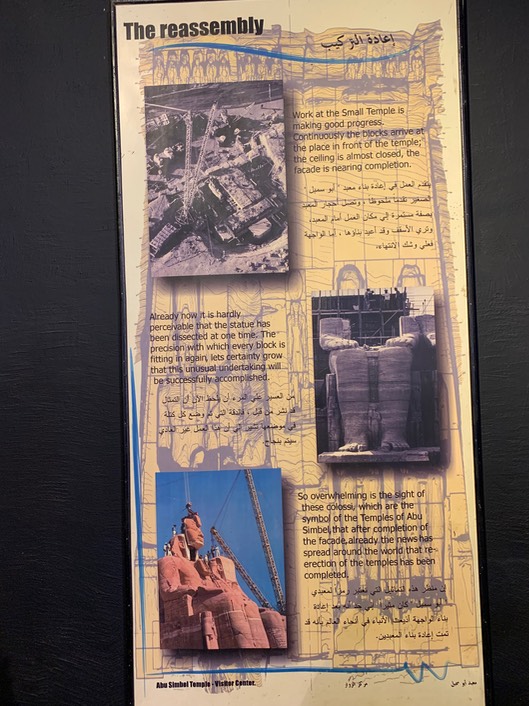 The reassembly
إعادة التركيب
Work at the Small Temple is
making good progress.
Continuously the blocks arrive at
the place in front of the temple;
the ceiling is almost closed, the
facade is nearing completion.
يتقدم العمل في إعادة بناء معبد " أبو سمبل
الصغير تقدما ملحوظا ، وتصل أحجار المعبد
بصفة مستمرة إلى مكان العمل أمام المعبد،
وترى الأسقف وقد أعيد بناؤها ، أما الواجهة
فعلى وشك الانتهاء.
Already now it is hardly
perceivable that the statue has
been dissected at one time. The
precision with which every block is
fitting in again, lets certainty grow
that this unusual undertaking will
be successfully accomplished.
من العسير على المرء أن يلاحظ الآن أن التمثال
قد نشر من قبل ، فالدقة التي تم وضع كل كتلة
في موضعها تشير إلى أن هذا العمل غير العادي
سيتم بنجاح.
So overwhelming is the sight of
these colossi, which are the
symbol of the Temples of Abu
Simbel, that after completion of
the facade, already the news has
spread around the world that re-
erection of the temples has been
completed.
أن منظر هذه التماثيل التي تعتبر رمزا لمعبدي
بناء الواجهة أذيعت الأنباء في أنحاء العالم بأنه قد
تمت إعادة بناء المعبدين.
Abu Simbel Temple - Visitor Center.
معبد أبو سمبل